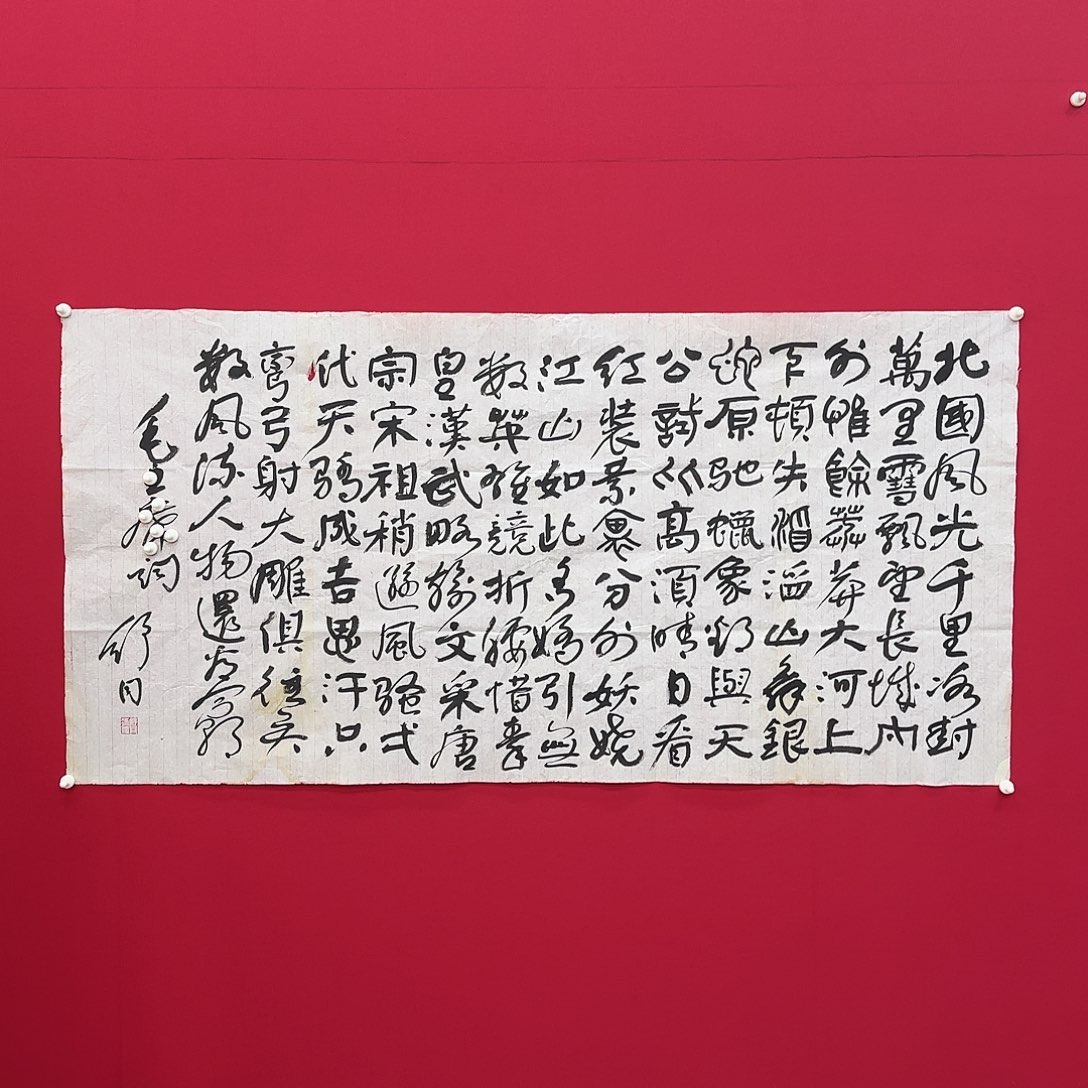 北國風光千里冰封
萬里雪飄望長城内
外惟餘莽莽大河上
下頓失滔滔山舞銀
蛇原馳蠟象欲與天
公試比高須晴日看
红裝素裹分外妖嬈
江山如此多嬌引無
數英雄競折腰惜秦
皇漢武略輸文采唐
宗宋祖稍遜風骚弌
代天骄成吉思汗只
彎弓射大雕俱往矣
數風流人物還看今朝
毛主席詞
舒同